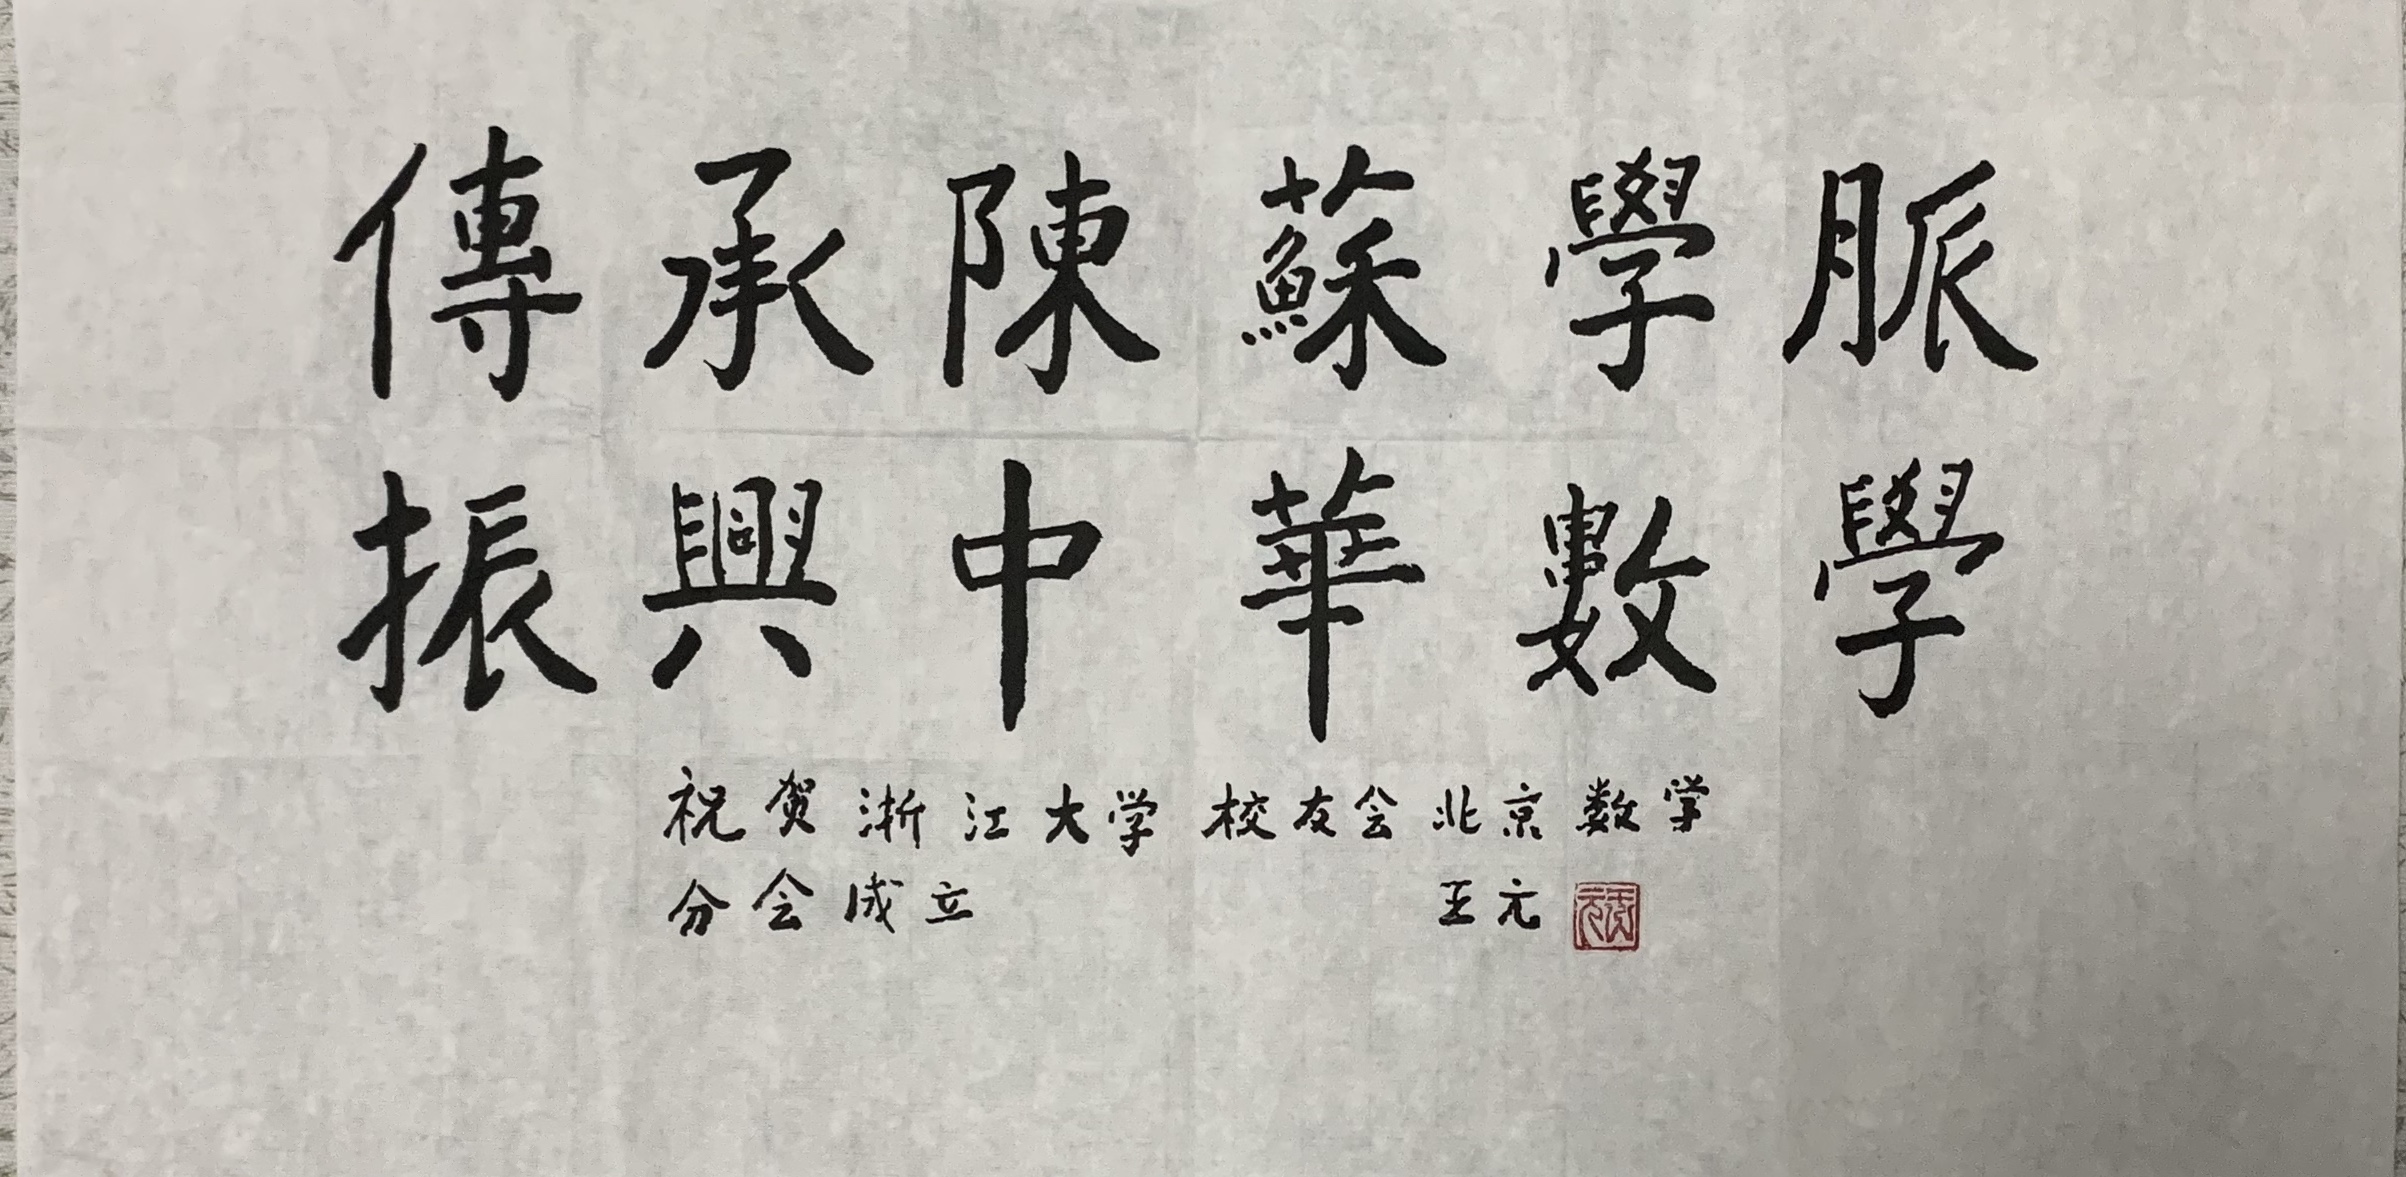 傳承陳蘇學脈
振興中華數學
祝贺浙江大学校友会北京数学
分会成立 王元